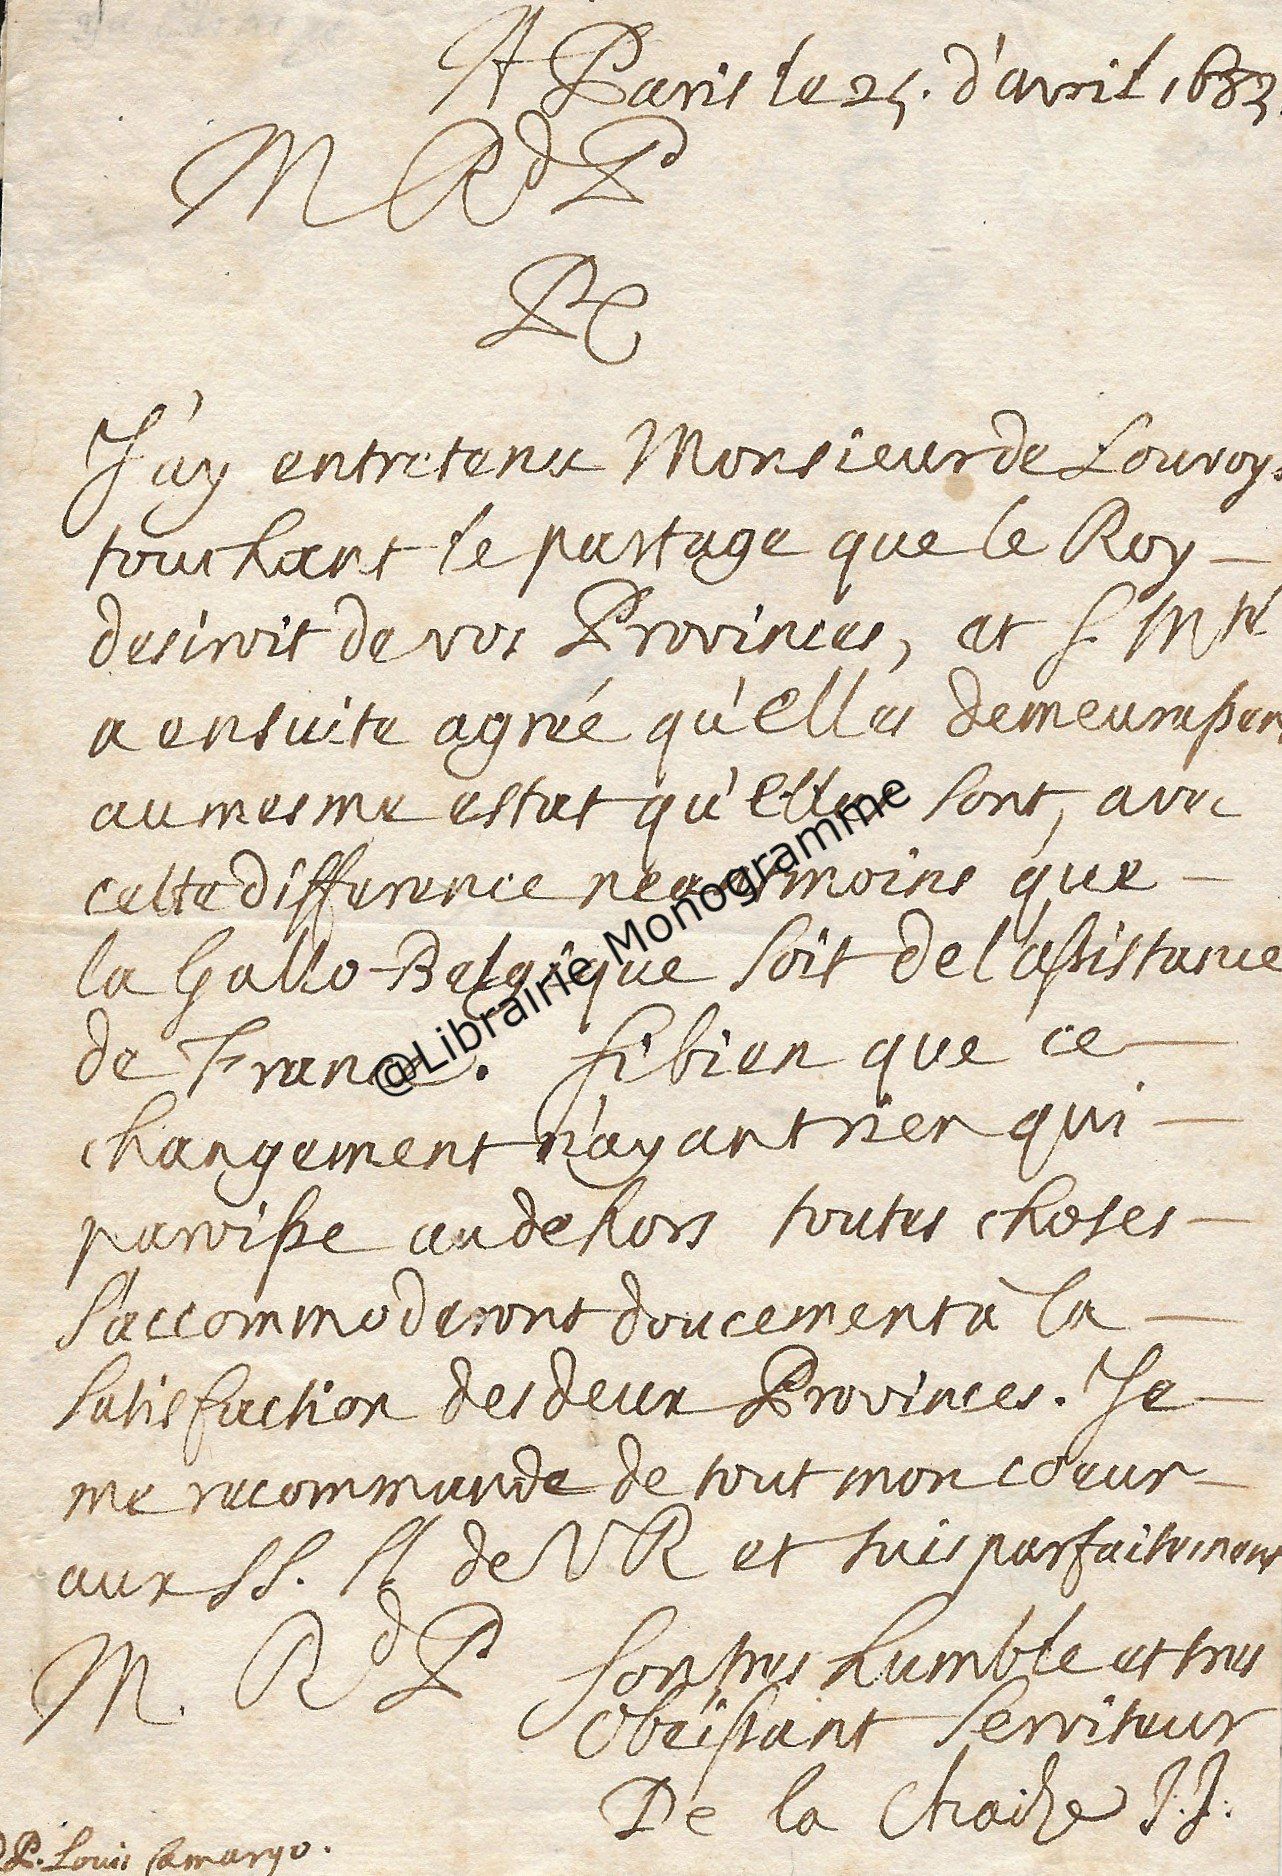 A Paris le 25. d'avril 1683.
M Rd P
PC
J'ay entretenu Monsieur de Louvoys
touchant le partage que le Roy
desiroit de vos Provinces, et S. Mté
a ensuite agréé qu'elles demeurassent
au mesme estat qu'elles sont, avec
cette difference neantmoins que
la Gallo-Belgique soit de l'assistance
de France. Si bien que ce
changement n'ayant rien qui
paroisse au dehors toutes choses
s'accommoderont doucement à la
satisfaction des deux Provinces. Je
me recommande de tout mon coeur
aux SS. SS de VR et suis parfaitement
M. Rd P
Son tres humble et tres
Obeissant Serviteur
De la Chaize J.J.
P. Louis Camargo.
@Librairie Monogramme